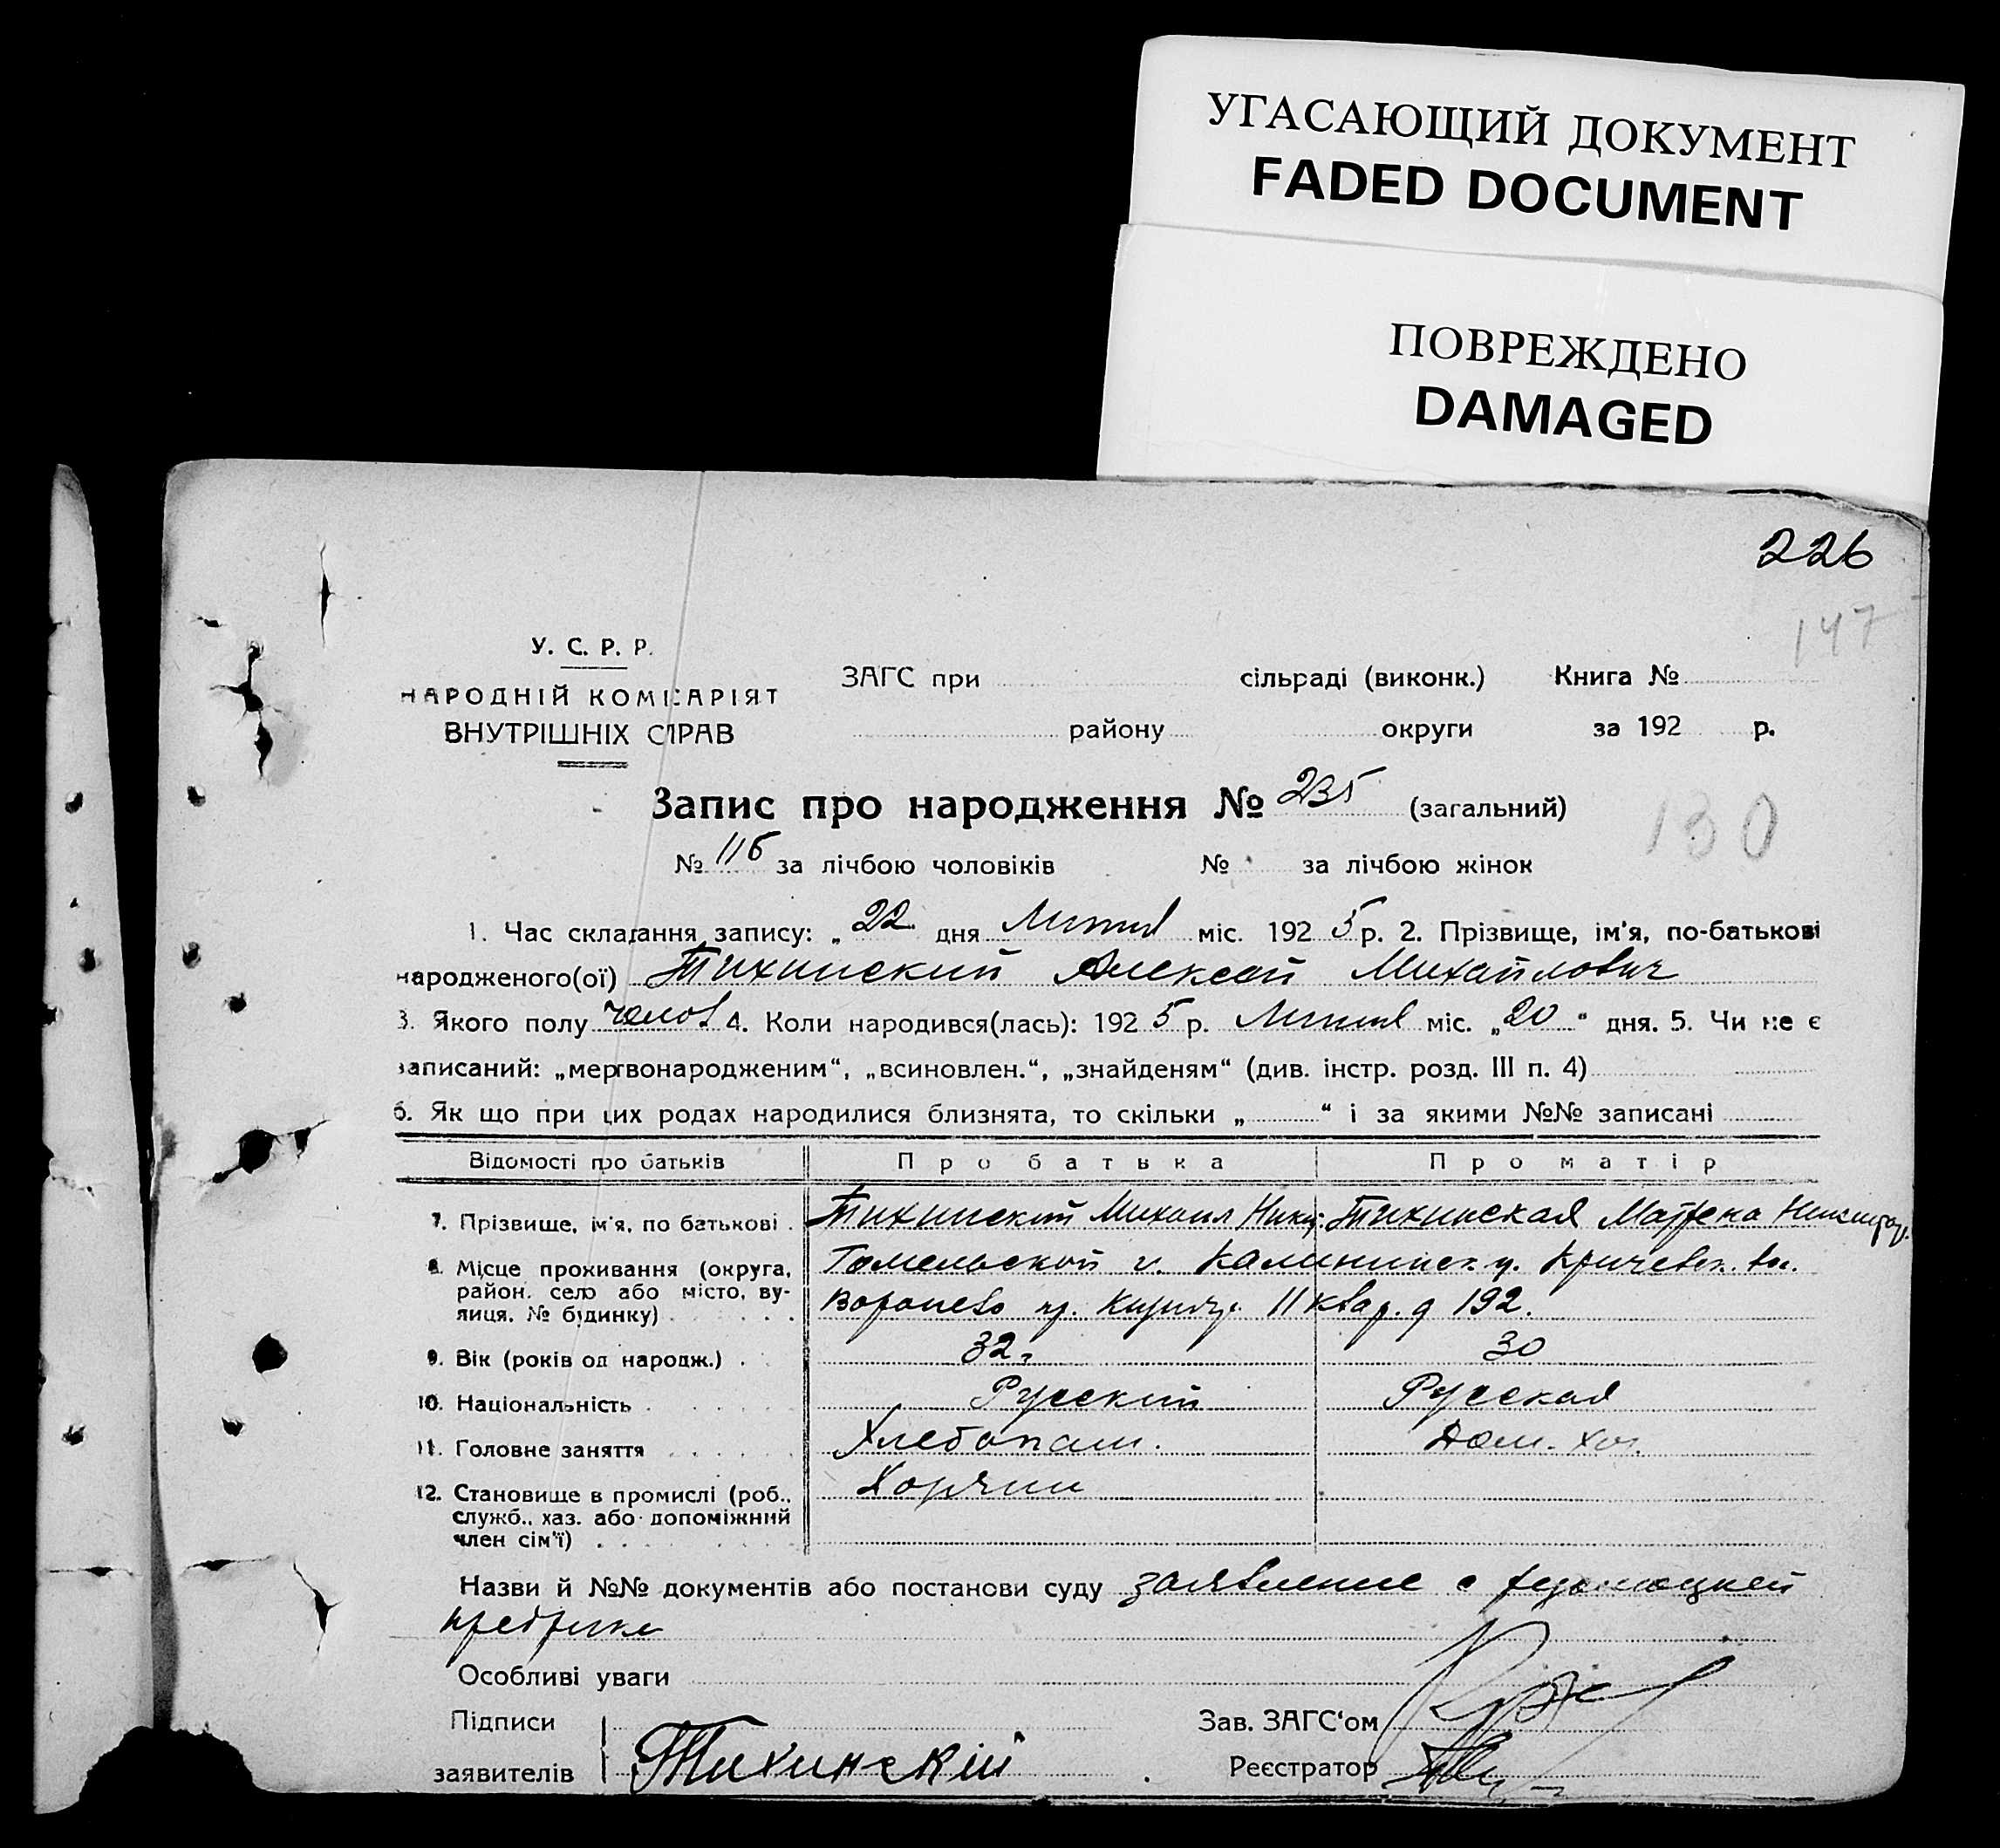 УГАСАЮЩИЙ ДОКУМЕНТ
FADED DOCUMENT
ПОВРЕЖДЕНО
DAMAGED
226
147
У. С. Р. Р.
НАРОДНІЙ КОМІСАРІЯТ
ВНУТРІШНІХ СПРАВ
ЗАГС при сільраді (виконк.) Книга №
району округи за 192 р.
Запис про народження № 235 (загальний)
130
№ 116 за лічбою чоловіків № за лічбою жінок
1. Час складання запису: „ 22 дня Липня міс. 192 5 р. 2. Прізвище, ім'я, по-батькові
народженого(ої) Тихинский Алексей Михайлович
3. Якого полу челов 4. Коли народився(лась): 192 5 р. Липня міс. „20" дня. 5. Чи не є
записаний: „мертвонародженим", „всиновлен.", „знайденям" (див. інстр. розд. III п. 4)
6. Як що при цих родах народилися близнята, то скільки „ " і за якими №№ записані
Відомості про батьків Про батька Про матір
7. Прізвище, ім'я, по батькові Тихинский Михаил Тихинская Матрена
8. Місце проживання (округа, район, село або місто, вулиця, № будинку)
Гомельской г. Калининск у. Кричевск. вол.
11 квар. д 192.
9. Вік (років од народж.) 32 г 30
10. Національність Русский Русская
11. Головне заняття Хлебопаш. Дом. хоз.
12. Становище в промислі (роб., служб., хаз. або допоміжний член сім'ї) Хозяин
Назви й №№ документів або постанови суду заявление с
Особливі уваги
Підписи Зав. ЗАГС'ом
заявителів Тихинскій Реєстратор